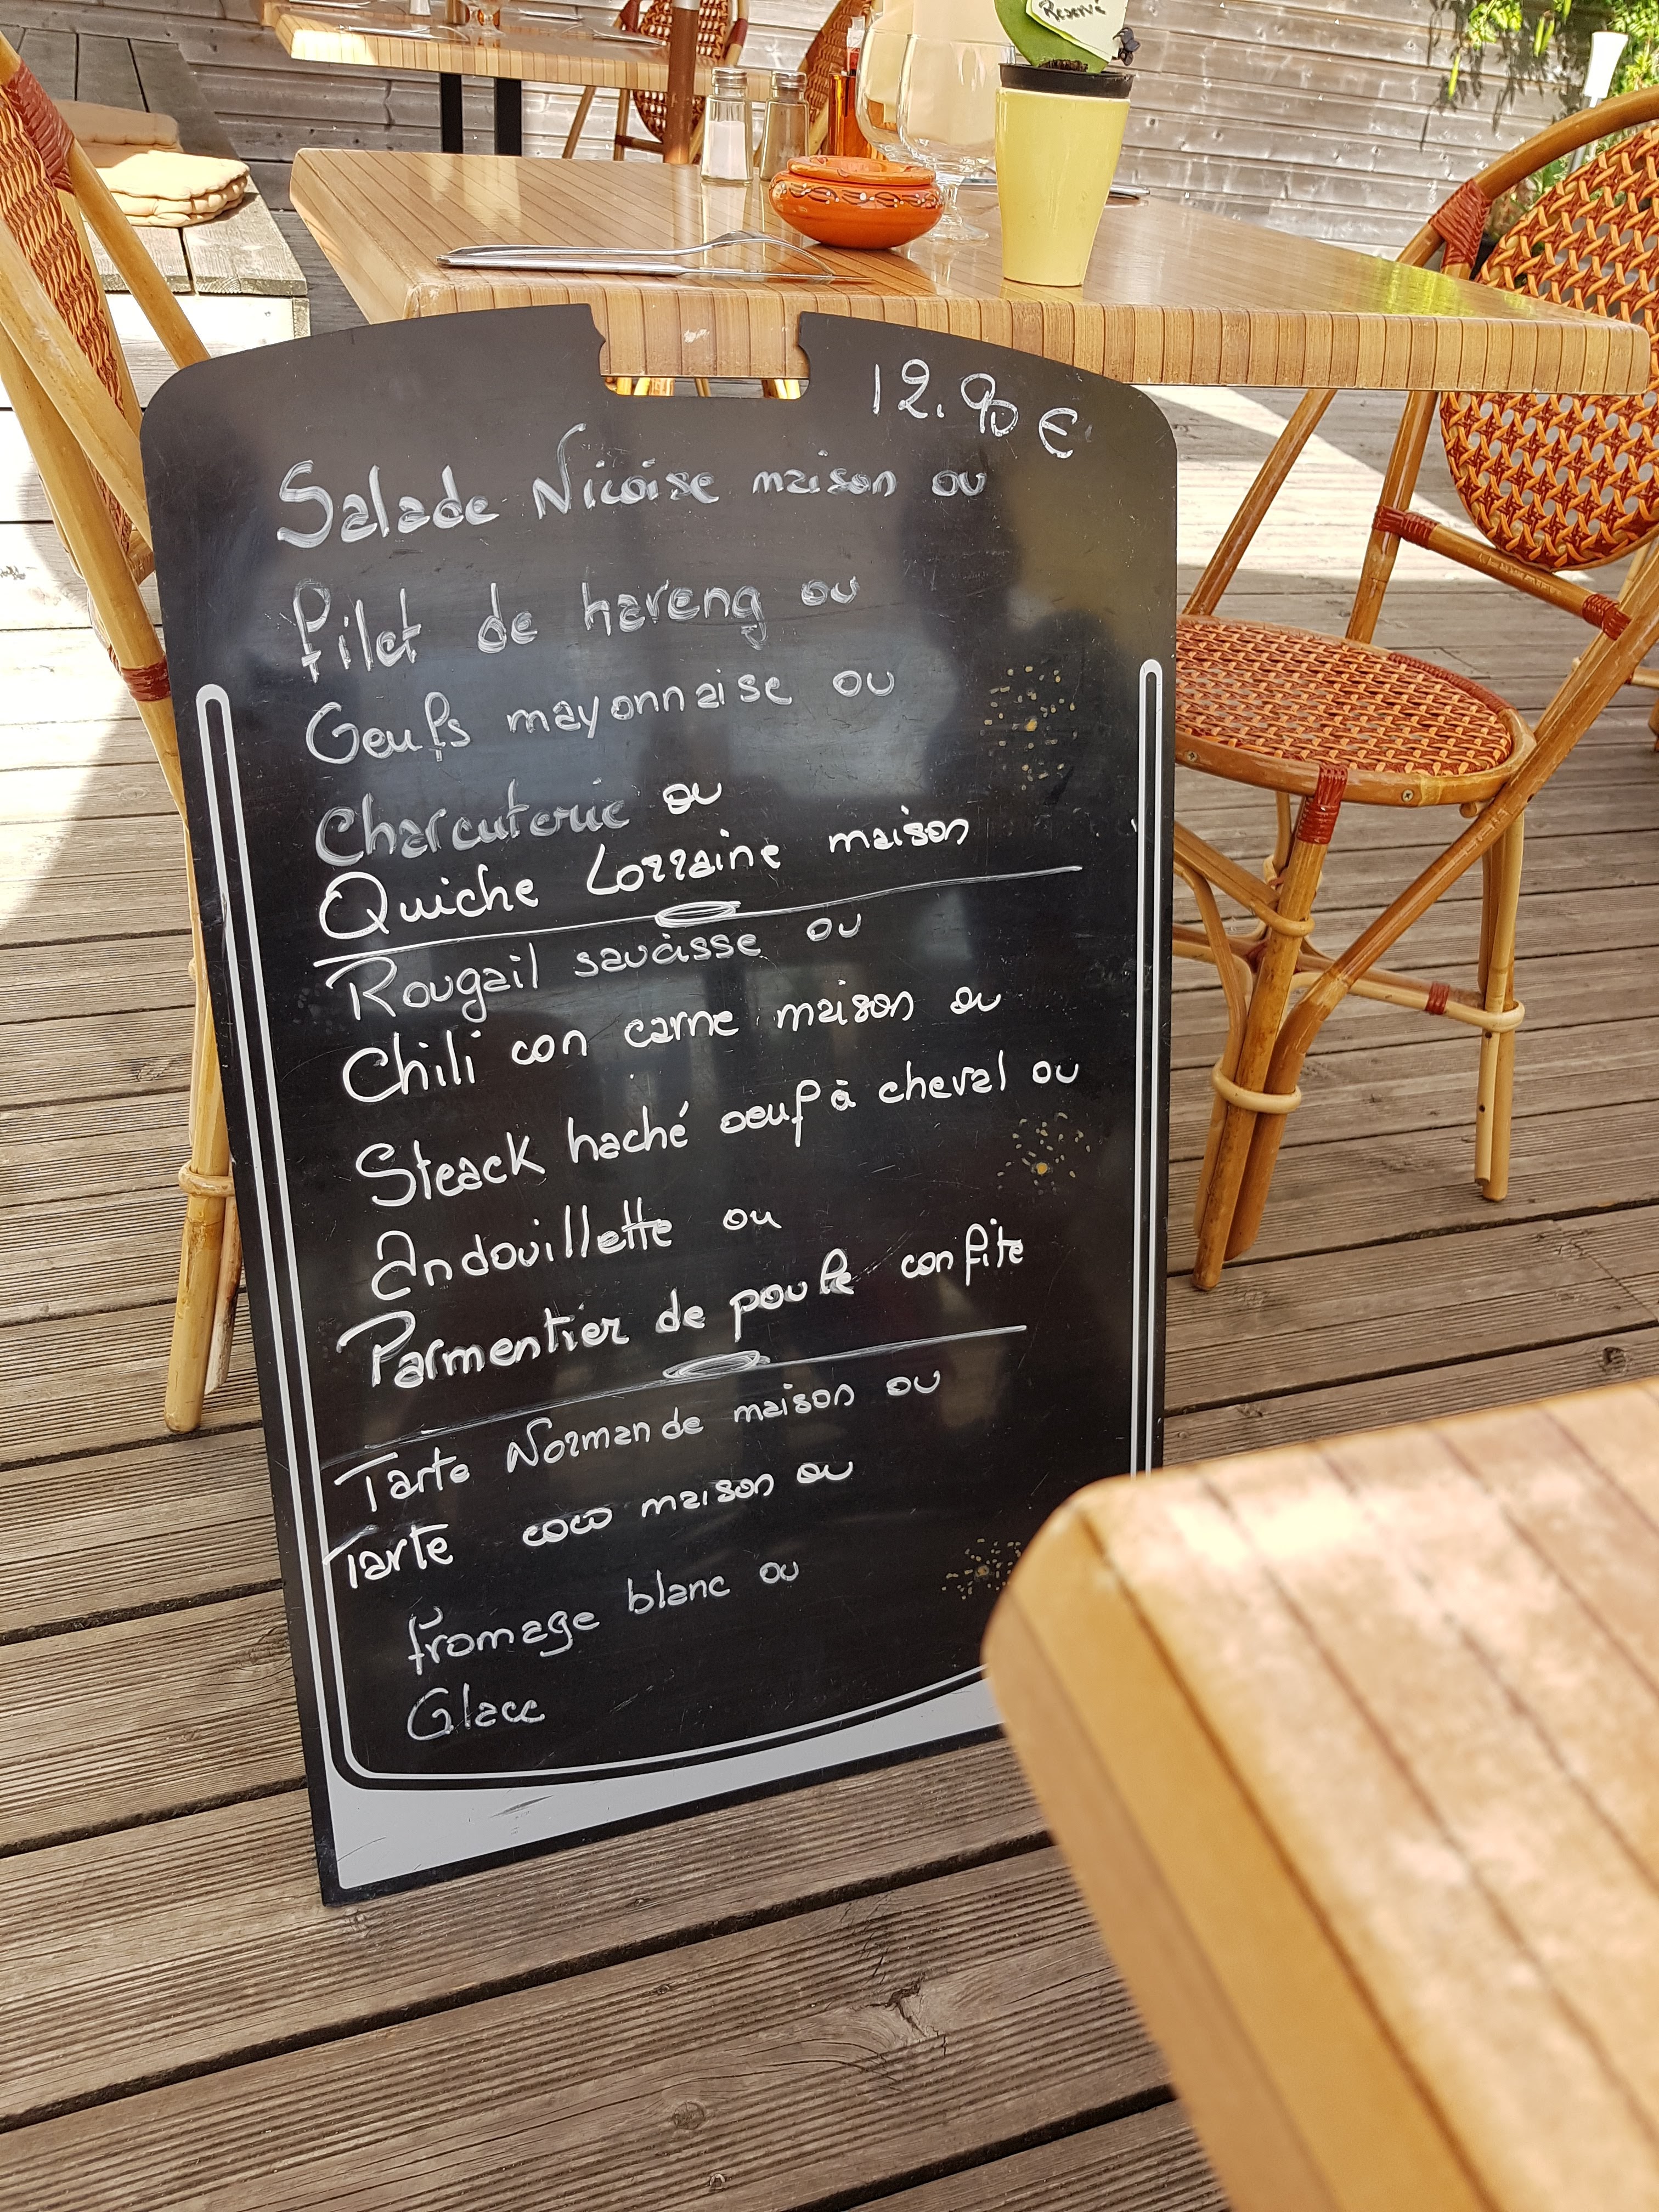 Reservé
12.90 €
Salade Nicoise maison ou
filet de hareng ou
Oeufs mayonnaise ou
Charcuterie ou
Quiche Lorraine maison
Rougail saucisse ou
Chili con carne maison ou
Steack haché oeuf à cheval ou
Andouillette ou
Parmentier de poule confite
Tarte Normande maison ou
Tarte coco maison ou
fromage blanc ou
Glace